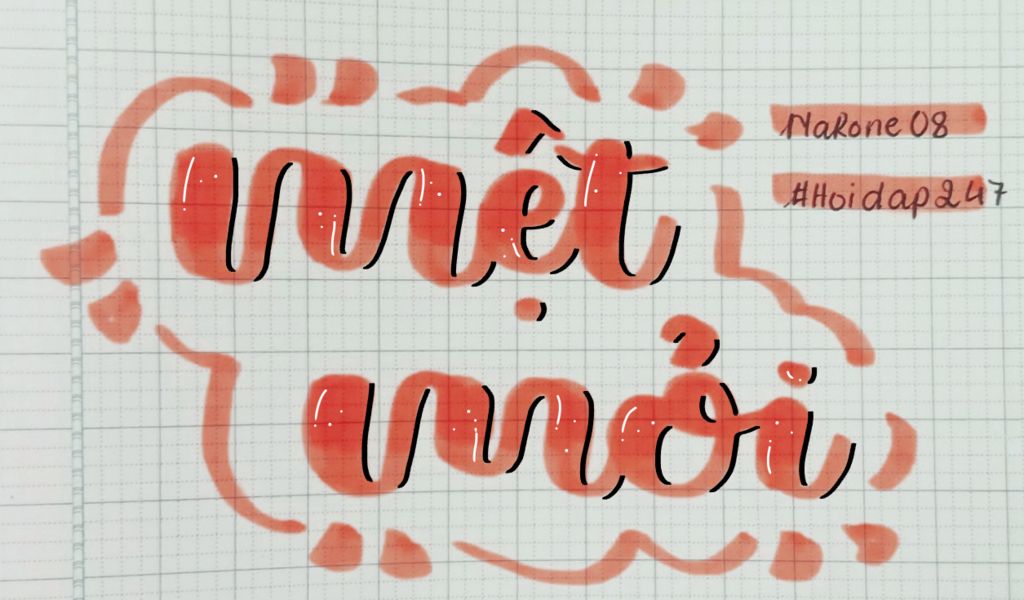 mệt
mỏi
NaRone 08
#Hoidap247